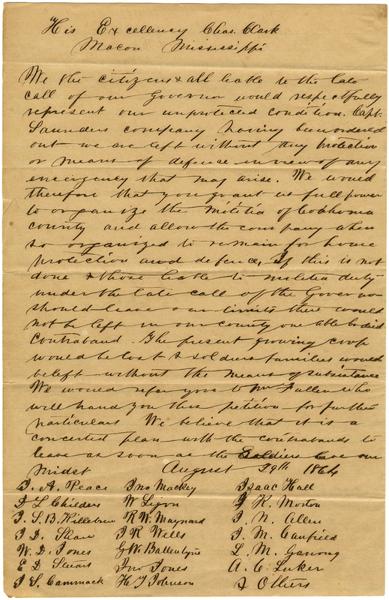 His Excellency Chas. Clark
Macon Mississippi
We the citizens & all liable to the late
call of our Governor would respectfully
represent our unprotected condition. Capt.
Saunders company having been ordered
out we are left without any protection
or means of defense in view of any
emergency that may arise. We would
therefore that you grant us full power
to organize the militia of Coahoma
county and allow the company when
so organized to remain for home
protection and defence, if this is not
done & those liable to militia duty
under the late call of the Governor
should leave our limits there would
not be left in our county one able bodied
Contraband. The present growing crop
would be lost & soldiers families would
be left without the means of subsistance
We would refer you to Mr Fullen who
will hand you this petition for further
particulars We believe that it is a
concerted plan with the contrabands to
leave as soon as the Soldiers leave our
midst August 29th 1864
D. A. Peace Jno Mackey Isaac Hall
D L Childers W Ligon J K. Morton
J. S. B. R W. Maynard J. N. Allen
J D. J R Wells J. M. Canfield
W. D. Jones G W Ballentyne L. M. Ganong
E D Jno Jones A. C. Luker
J S. Cammack H J Johnson & Others